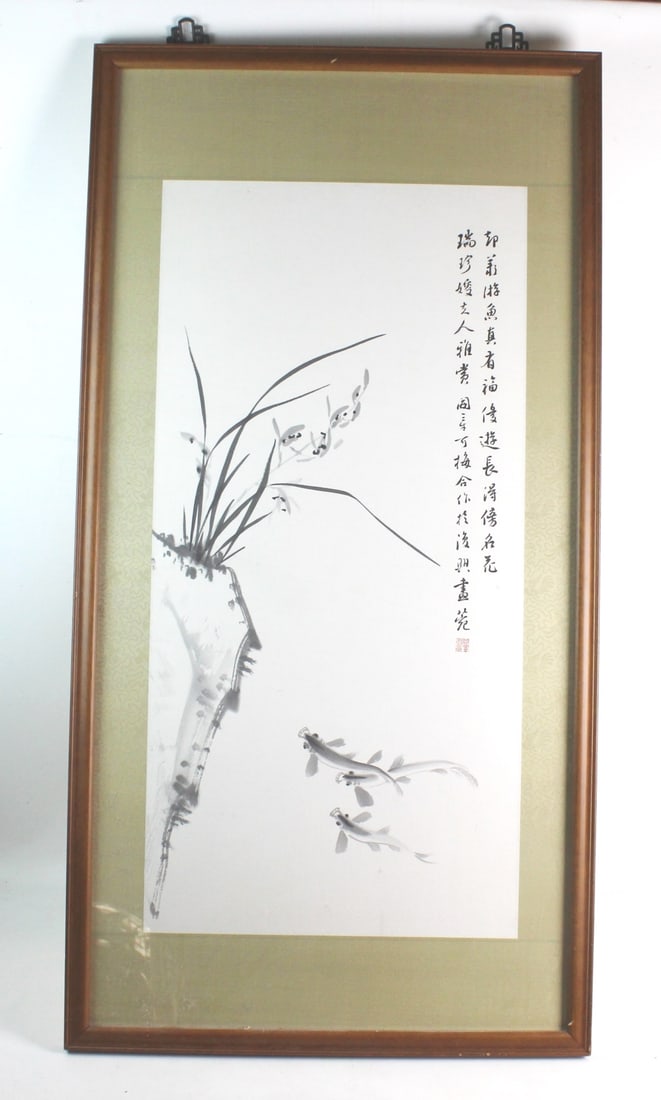 却羨游魚真有福優遊長得傍名花
瑞珍嫂夫人雅賞 可梅合作於復興畫苑